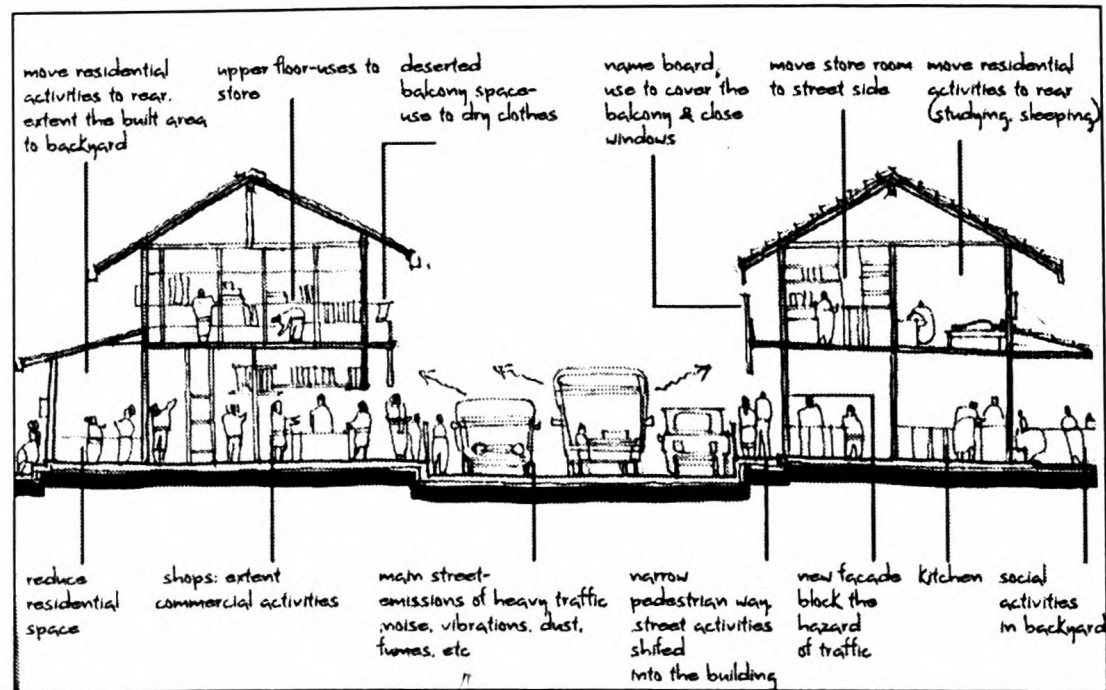 move residential
activities to rear.
extent the built area
to backyard
upper floor-uses to
store
deserted
balcony space-
use to dry clothes
name board,
use to cover the
balcony & close
windows
move store room
to street side
move residential
activities to rear
(studying, sleeping)
reduce
residential
space
shops: extent
commercial activities
main street-
emissions of heavy traffic
noise, vibrations, dust,
fumes, etc
narrow
pedestrian way,
street activities
shifed
into the building
new facade
block the
hazard
of traffic
kitchen
social
activities
in backyard